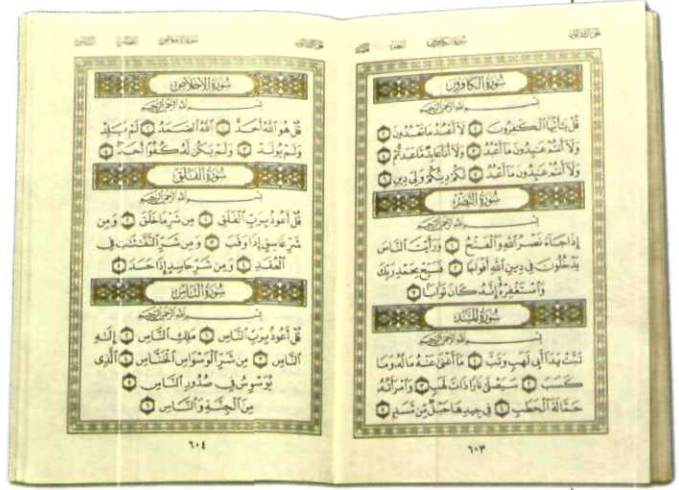 سُورَةُ الكَافِرُونَ
بِسْمِ اللَّهِ الرَّحْمَٰنِ الرَّحِيمِ
قُلْ يَٰٓأَيُّهَا ٱلْكَٰفِرُونَ ١ لَآ أَعْبُدُ مَا تَعْبُدُونَ ٢
وَلَآ أَنتُمْ عَٰبِدُونَ مَآ أَعْبُدُ ٣ وَلَآ أَنَا۠ عَابِدٌ مَّا عَبَدتُّمْ ٤
وَلَآ أَنتُمْ عَٰبِدُونَ مَآ أَعْبُدُ ٥ لَكُمْ دِينُكُمْ وَلِىَ دِينِ ٦
سُورَةُ النَّصْرِ
بِسْمِ اللَّهِ الرَّحْمَٰنِ الرَّحِيمِ
إِذَا جَآءَ نَصْرُ ٱللَّهِ وَٱلْفَتْحُ ١ وَرَأَيْتَ ٱلنَّاسَ
يَدْخُلُونَ فِى دِينِ ٱللَّهِ أَفْوَاجًا ٢ فَسَبِّحْ بِحَمْدِ رَبِّكَ
وَٱسْتَغْفِرْهُ إِنَّهُۥ كَانَ تَوَّابًۢا ٣
سُورَةُ المَسَدِ
بِسْمِ اللَّهِ الرَّحْمَٰنِ الرَّحِيمِ
تَبَّتْ يَدَآ أَبِى لَهَبٍ وَتَبَّ ١ مَآ أَغْنَىٰ عَنْهُ مَالُهُۥ وَمَا
كَسَبَ ٢ سَيَصْلَىٰ نَارًا ذَاتَ لَهَبٍ ٣ وَٱمْرَأَتُهُۥ
حَمَّالَةَ ٱلْحَطَبِ ٤ فِى جِيدِهَا حَبْلٌ مِّن مَّسَدٍۭ ٥
٦٠٣
سُورَةُ الإِخْلَاصِ
بِسْمِ اللَّهِ الرَّحْمَٰنِ الرَّحِيمِ
قُلْ هُوَ ٱللَّهُ أَحَدٌ ١ ٱللَّهُ ٱلصَّمَدُ ٢ لَمْ يَلِدْ
وَلَمْ يُولَدْ ٣ وَلَمْ يَكُن لَّهُۥ كُفُوًا أَحَدٌۢ ٤
سُورَةُ الفَلَقِ
بِسْمِ اللَّهِ الرَّحْمَٰنِ الرَّحِيمِ
قُلْ أَعُوذُ بِرَبِّ ٱلْفَلَقِ ١ مِن شَرِّ مَا خَلَقَ ٢ وَمِن
شَرِّ غَاسِقٍ إِذَا وَقَبَ ٣ وَمِن شَرِّ ٱلنَّفَّٰثَٰتِ فِى
ٱلْعُقَدِ ٤ وَمِن شَرِّ حَاسِدٍ إِذَا حَسَدَ ٥
سُورَةُ النَّاسِ
بِسْمِ اللَّهِ الرَّحْمَٰنِ الرَّحِيمِ
قُلْ أَعُوذُ بِرَبِّ ٱلنَّاسِ ١ مَلِكِ ٱلنَّاسِ ٢ إِلَٰهِ
ٱلنَّاسِ ٣ مِن شَرِّ ٱلْوَسْوَاسِ ٱلْخَنَّاسِ ٤ ٱلَّذِى
يُوَسْوِسُ فِى صُدُورِ ٱلنَّاسِ ٥
مِنَ ٱلْجِنَّةِ وَٱلنَّاسِ ٦
٦٠٤